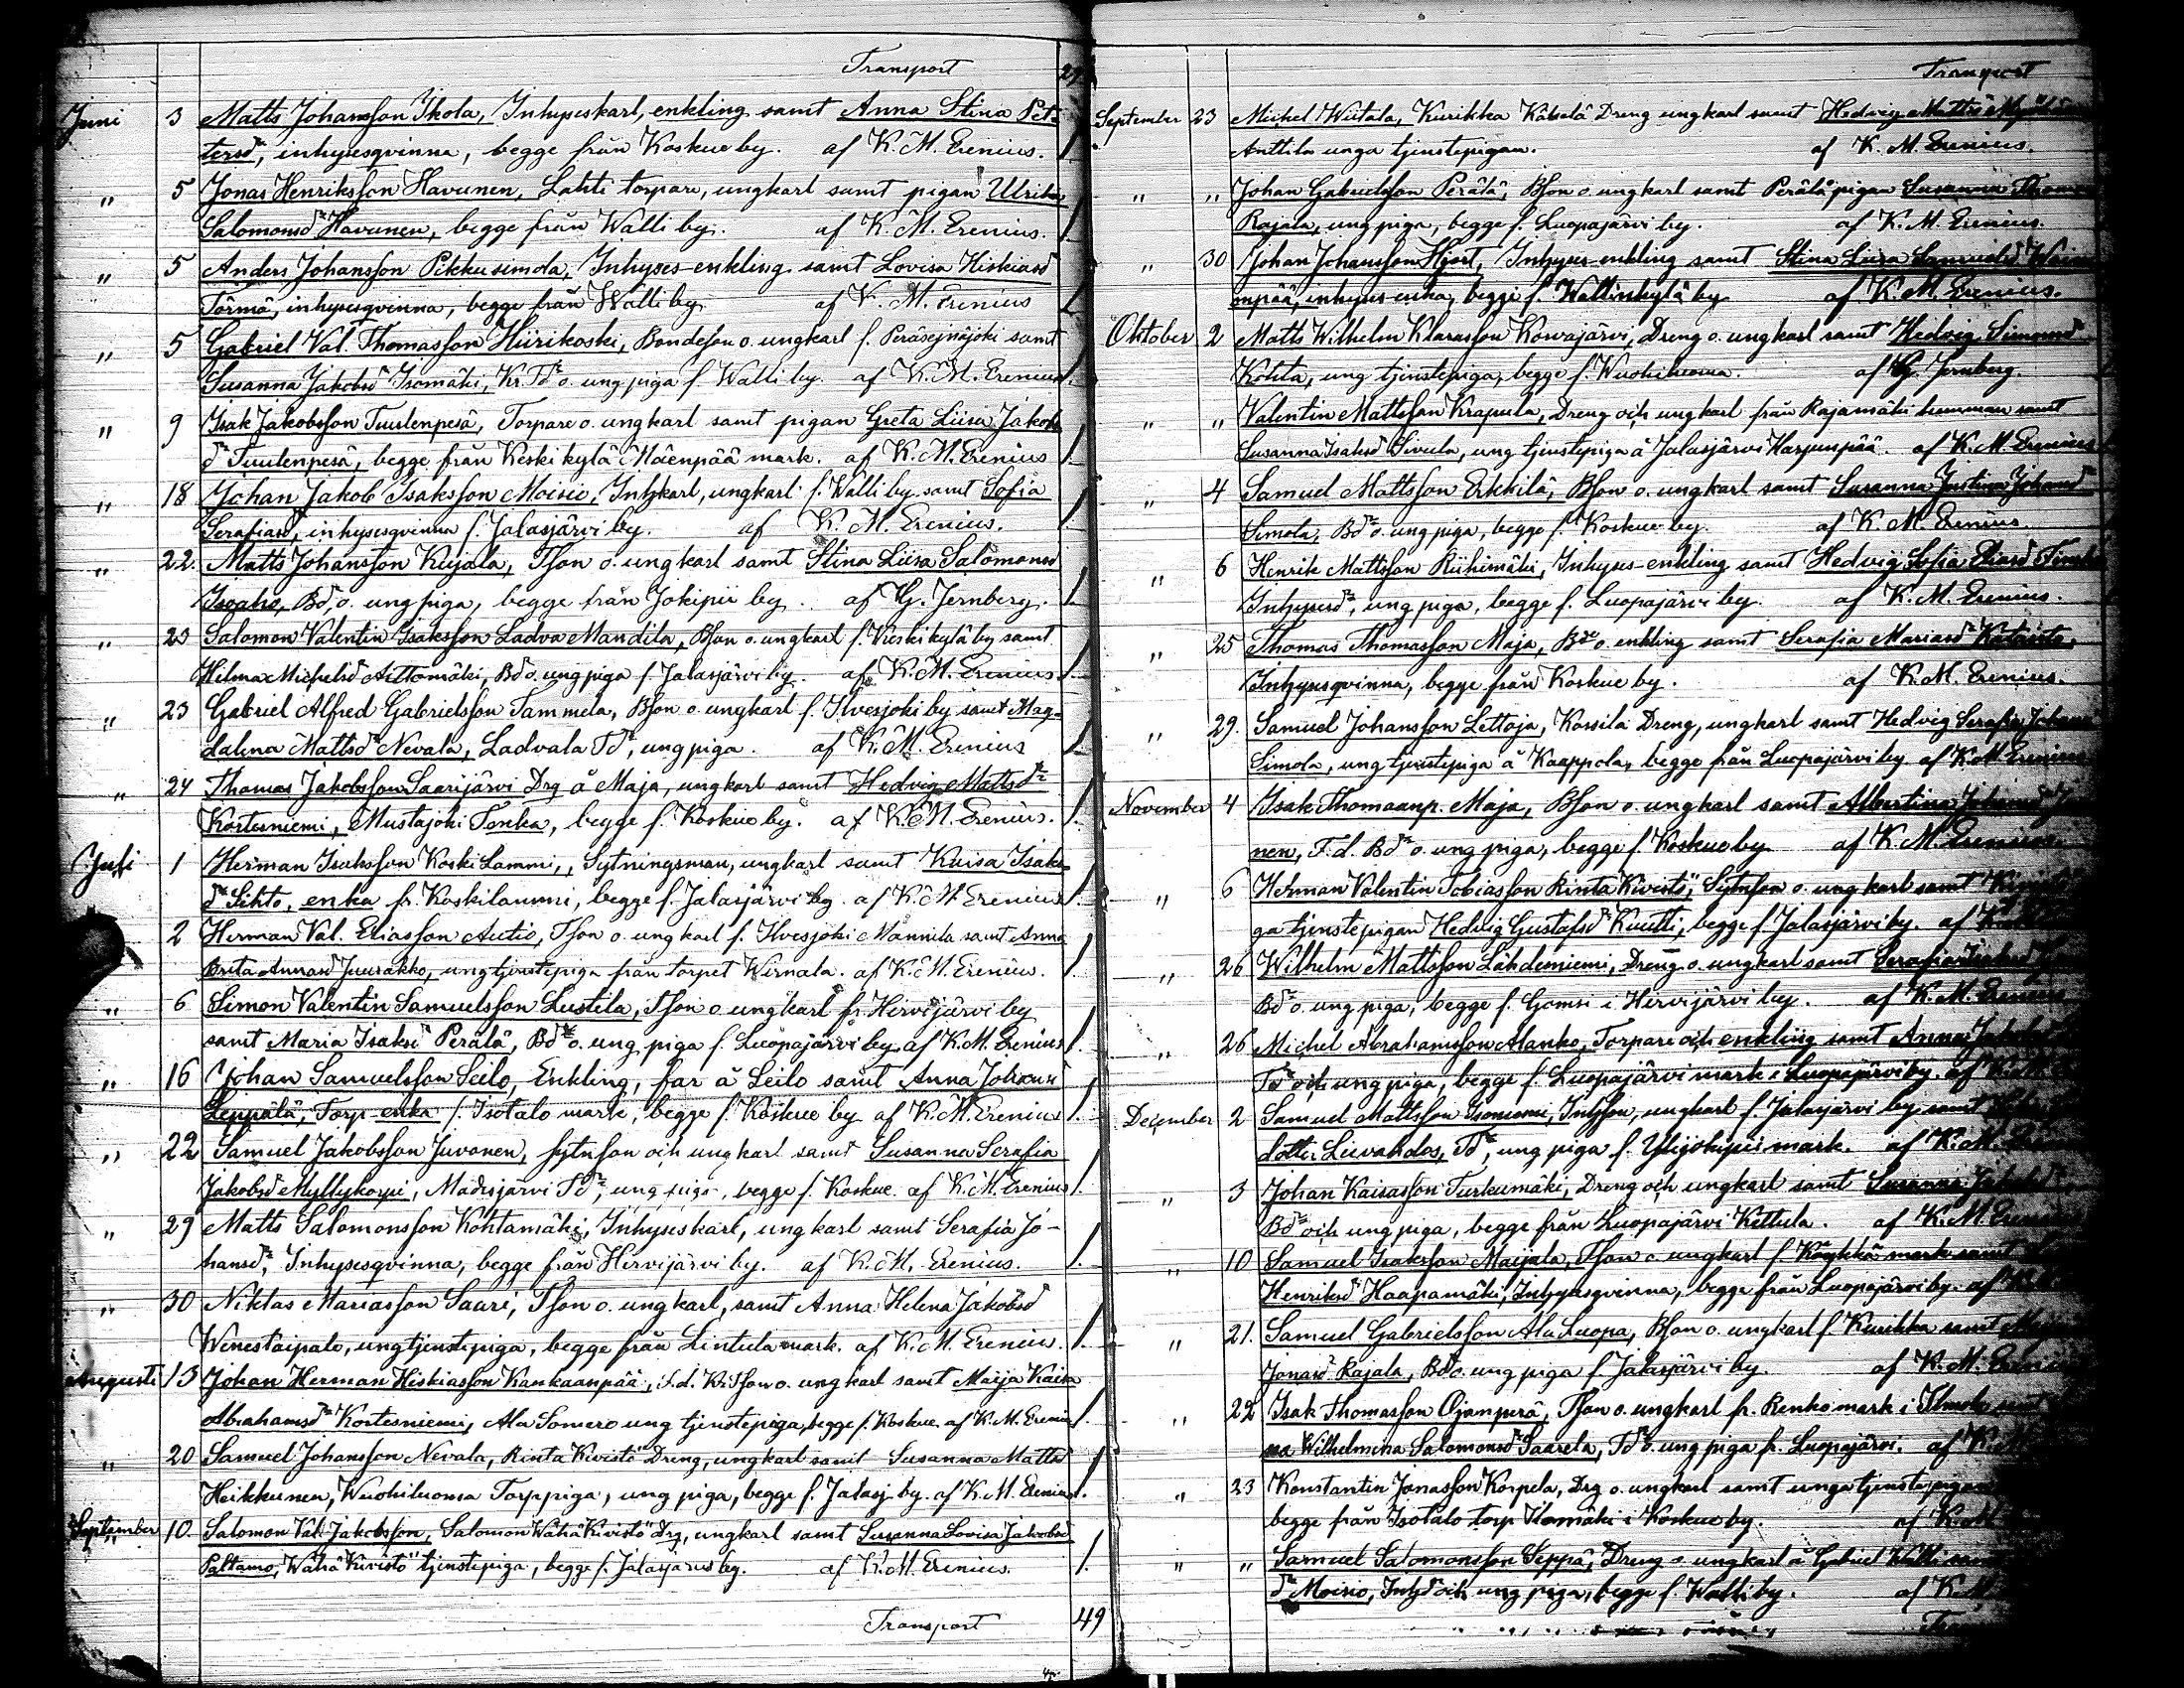 Transport 27
Juni 3 Matts Johansson Ikola, Inhyseskarl, enkling samt Anna Stina Pet-
tersdr, inhysesqvinna, begge från Koskue by. af K. M. Erenius. 1.
" 5 Jonas Henriksson Havunen, Lahti torpare, ungkarl samt pigan Ulrika
Salomonsdr Havunen, begge från Walli by. af K. M. Erenius. 1.
" 5 Anders Johansson Pikkusimola, Inhyses-enkling samt Lovisa Hiskiasd
Törmä, inhysesqvinna, begge från Walli by af K. M. Erenius 1.
" 5 Gabriel Val. Thomasson Hiirikoski, Bondeson o. ungkarl f. Peräseinäjoki samt
Susanna Jakobsd Isomäki, Kr. Tdr o. ung piga f. Walli by. af K. M. Erenius 1.
" 9 Isak Jakobsson Tuulenpesä, Torpare o. ungkarl samt pigan Greta Liisa Jakobs
dr Tuulenpesä, begge från Keskikylä Mäenpää mark. af K. M. Erenius 1.
" 18 Johan Jakob Isaksson Moisio, Inhkarl, ungkarl f. Walli by samt Sofia
Serafiasd, inhysesqvinna f. Jalasjärvi by. af K. M. Erenius. 1.
" 22. Matts Johansson Kujala, Tson o. ungkarl samt Stina Liisa Salomonsd
Isoaho, Bd, o. ung piga, begge från Jokipii by. af G. Jernberg. 1.
" 23 Salomon Valentin Isaksson Ladva Mandila, Bson o. ungkarl f. Keskikylä by samt
Hilma Michelsd Aittomäki, Bd o. ung piga f. Jalasjärvi by. af K. M. Erenius. 1.
" 23 Gabriel Alfred Gabrielsson Tammela, Bson o. ungkarl f. Ilvesjoki by samt Mag-
dalena Mattsdr Nevala, Ladvala Tdr, ung piga. af K. M. Erenius 1.
" 24 Thomas Jakobsson Saarijärvi Drg å Maja, ungkarl samt Hedvig Mattsdr
Kortesniemi, Mustajoki Tenka, begge f. Koskue by. af K. M. Erenius. 1.
Juli 1 Herman Isaksson Koski Lammi, Sytningsman, ungkarl samt Kaisa Isaks
dr Sihto, enka fr. Koskilammi, begge f. Jalasjärvi by. af K. M. Erenius 1.
2 Herman Val. Eliasson Autio, Tson o. ungkarl f. Ilvesjoki Mannila samt Anna
Brita Annasd Juurakko, ung tjenstepiga från torpet Wirnala. af K. M. Erenius. 1.
" 6 Simon Valentin Samuelsson Lustila, Tson o. ungkarl fr. Hirvijärvi by
samt Maria Isaksd Perälä, Bdr o. ung piga f. Luopajärvi by af K. M. Erenius 1.
" 16 Johan Samuelsson Seilo, Enkling, far å Seilo samt Anna Johansd
Leppälä, Torp. enka f. Isotalo mark, begge f. Koskue by af K. M. Erenius 1.
" 22 Samuel Jakobsson Juvonen, sytnson och ungkarl samt Susanna Serafia
Jakobsd Myllykorpi, Madesjärvi Tdr, ung piga, begge f. Koskue. af K. M. Erenius 1.
" 29 Matts Salomonsson Kohtamäki, Inhyseskarl, ungkarl samt Serafia Jo-
hansdr, Inhysesqvinna, begge från Hirvijärvi by. af K. M. Erenius. 1.
" 30 Niklas Mariasson Saari, Tson o. ungkarl, samt Anna Helena Jakobsd
Winestaipale, ung tjenstepiga, begge från Lintula mark. af K. M. Erenius. 1.
Augusti 13 Johan Herman Hiskiasson Kankaanpää, f.d. Kr. Tson o. ungkarl samt Maija Kaisa
Abrahamsdr Kortesniemi, Ala Somero ung tjenstepiga, begge f. Koskue. af K. M. Erenius 1.
" 20 Samuel Johansson Nevala, Rinta Kivistö Dreng, ungkarl samt Susanna Mattsd
Heikkunen, Wuohiluoma Torppiga, ung piga, begge f. Jalasj. by. af K. M. Erenius 1.
September 10. Salomon Val. Jakobsson, Salomon Wähä Kivistö Drg, ungkarl samt Susanna Lovisa Jakobsd
Paltamo, Wähä Kivistö tjenstepiga, begge f. Jalasjärvi by. af K. M. Erenius. 1.
Transport 49
Transport
September 23 Michel Wiitala, Kurikka Käkelä Dreng ungkarl samt Hedvig Mattsd
Anttila unga tjenstepigan. af K. M. Erenius.
" " Johan Gabrielsson Perälä, Bson o. ungkarl samt Perälä pigan Susanna
Rajala, ung piga, begge f. Luopajärvi by. af K. M. Erenius.
" 30 Johan Johansson Hjort, Inhyses-enkling samt Stina Liisa Samuelsd
mpää, inhyses-enka, begge f. Wallinkylä by af K. M. Erenius.
Oktober 2 Matts Wilhelm Klarasson Kowajärvi, Dreng o. ungkarl samt Hedvig Simonsd
Kohta, ung tjenstepiga, begge f. Wuohiluoma. af G. Jernberg.
" " Valentin Mattsson Krapula, Dreng och ungkarl från Rajamäki hemman samt
Susanna Isaksd Sivula, ung tjenstepiga å Jalasjärvi Harjunpää. af K. M. Erenius
" 4 Samuel Mattsson Erkkilä, Bson o. ungkarl samt Susanna Justina Johansdr
Simola, Bdr o. ung piga, begge f. Koskue by. af K. M. Erenius.
" 6 Henrik Mattsson Riihimäki, Inhyses-enkling samt Hedvig Sofia Eliasd
Inhysesdr, ung piga, begge f. Luopajärvi by. af K. M. Erenius.
" 25 Thomas Thomasson Maja, Bde o. enkling samt Serafia Mariasdr Kataisto,
Inhysesqvinna, begge från Koskue by. af K. M. Erenius.
" 29. Samuel Johansson Lettoja, Korsila Dreng, ungkarl samt Hedvig Serafia Johans
Simola, ung tjenstepiga å Kaappola, begge från Luopajärvi by. af K. M. Erenius
November 4 Isak Thomasp. Maja, Bson o. ungkarl samt Albertina
nen, F.d. Bdr o. ung piga, begge f. Koskue by af K. M. Erenius.
" 6 Herman Valentin Tobiasson Rinta Kivistö, Sytnson o. ungkarl samt
ga tjenstepigan Hedvig Gustafsdr Kuutti, begge f. Jalasjärvi by. af K.
" 26 Wilhelm Mattsson Lähdeniemi, Dreng o. ungkarl samt Serafia
Bdr o. ung piga, begge f. Gomsi i Hirvijärvi by. af K. M. Erenius
" 26 Michel Abrahamsson Alanko, Torpare och enkling samt Anna
Tdr och ung piga, begge f. Luopajärvi mark i Luopajärvi by. af K. M.
December 2 Samuel Mattsson Isoniemi, Inhson, ungkarl f. Jalasjärvi by samt
dotter Liivahdos, Tdr, ung piga f. Ylijokipii mark. af K. M.
" 3 Johan Kaisasson Turkumäki, Dreng och ungkarl samt Susanna
Bdr och ung piga, begge från Luopajärvi Kettula. af K. M. Erenius
" 10 Samuel Isaksson Maijala, Tson o. ungkarl f. Köykkä mark samt
Henriksd Haapamäki, Inhysesqvinna, begge från Luopajärvi by. af
" 21. Samuel Gabrielsson Ala Luopa, Bson o. ungkarl f. Kurikka samt
Jonasd Rajala, Bdr o. ung piga f. Jalasjärvi by. af K. M. Erenius
" 22 Isak Thomasson Ojanperä, Tson o. ungkarl fr. Renko mark i Ilmola samt
na Wilhelmina Salomonsdr Saarela, Tdr o. ung piga fr. Luopajärvi. af K.
" 23 Konstantin Jonasson Korpela, Drg o. ungkarl samt unga tjenstepigan
begge från Isotalo torp Ilomäki i Koskue by. af K. M.
" " Samuel Salomonsson Seppä, Dreng o. ungkarl å Gabriel Walli
dr Moisio, Inhd och ung piga, begge f. Walli by. af K. M.